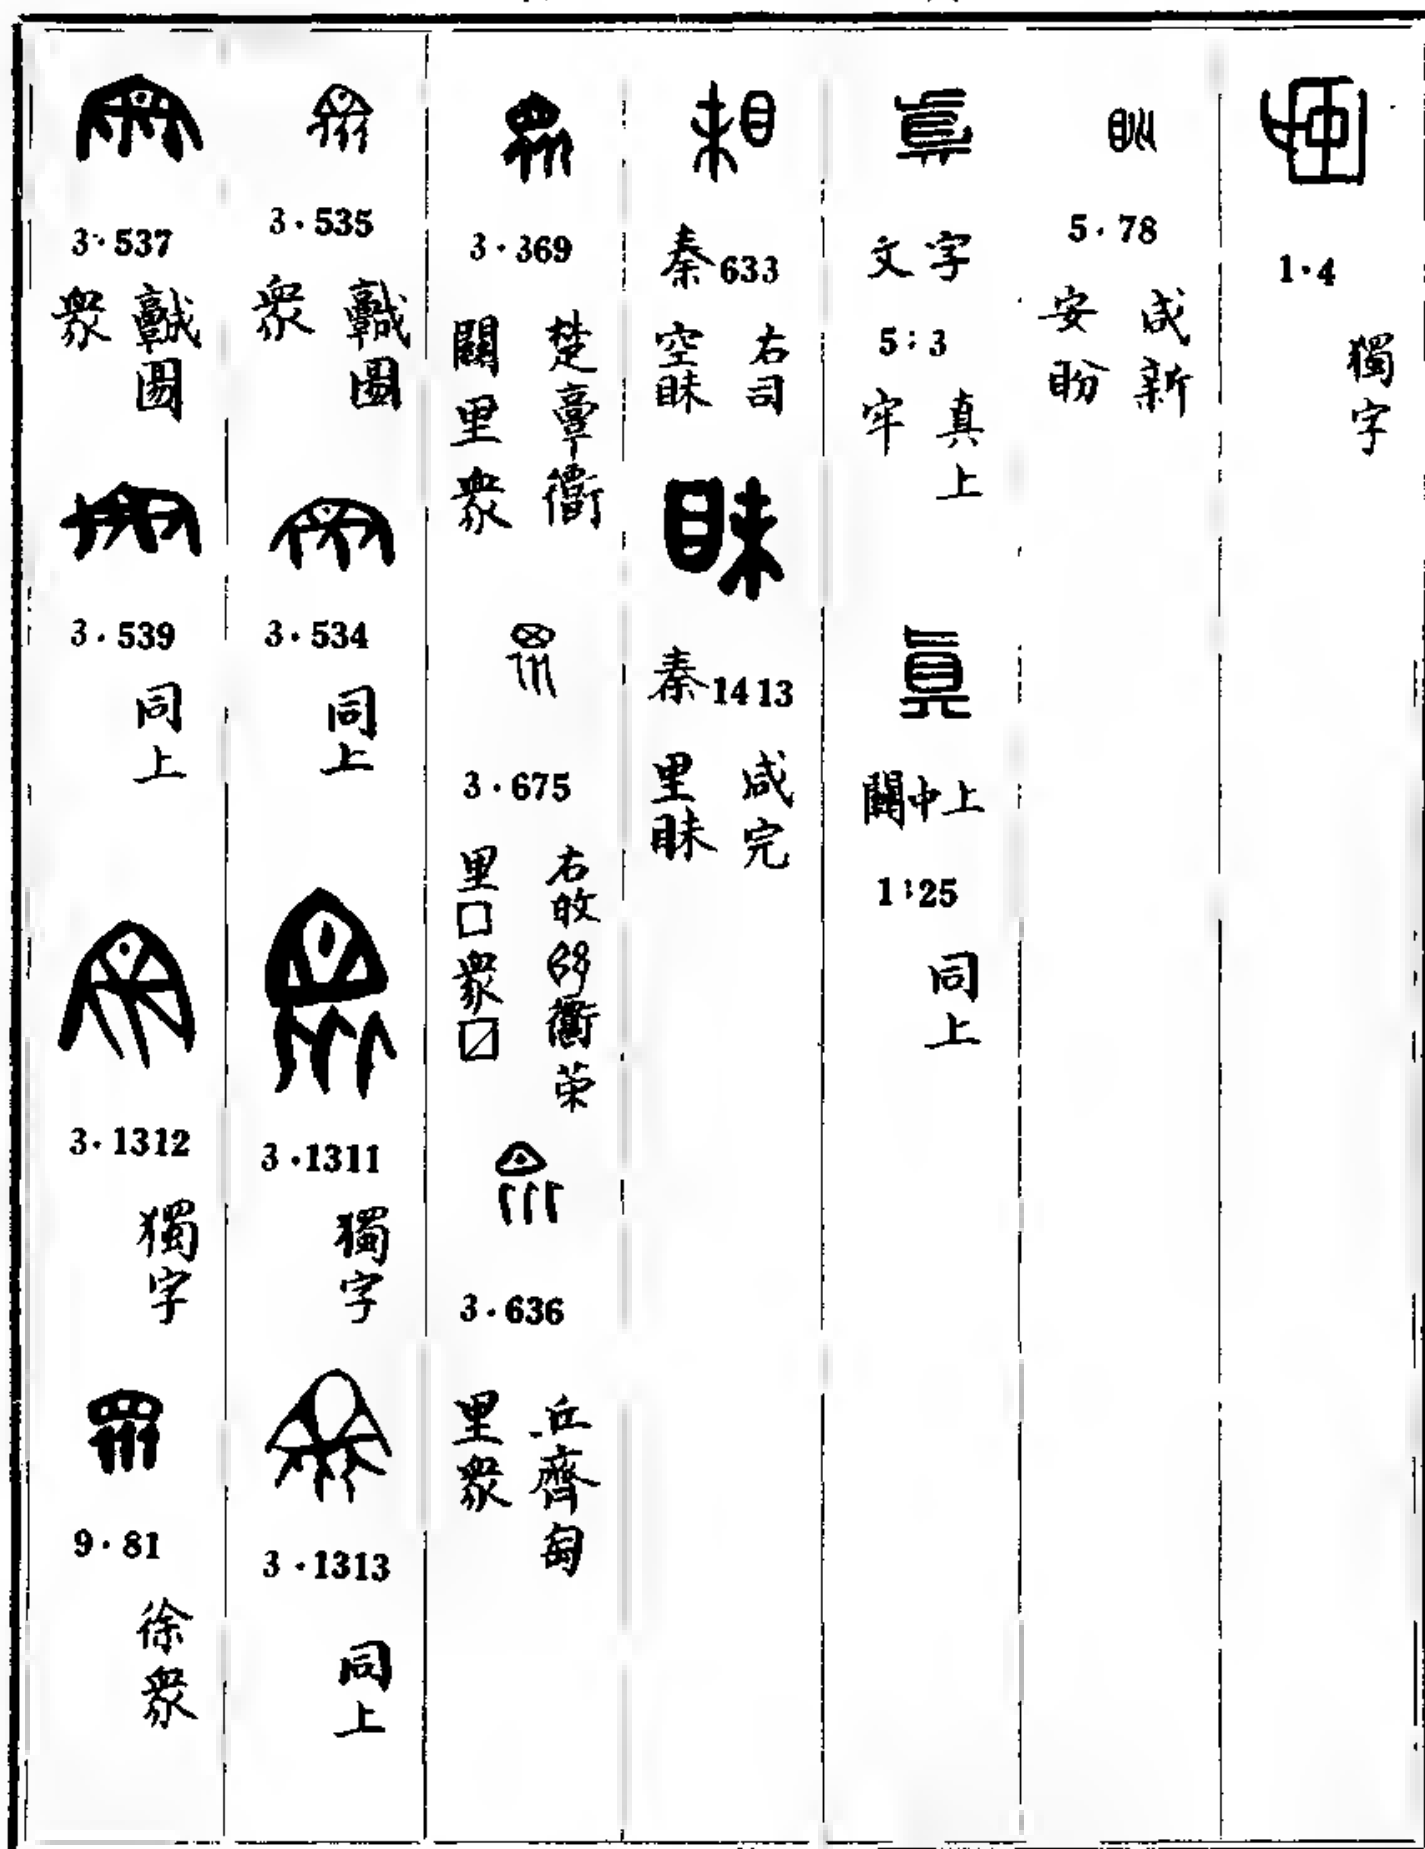 1·4
獨字
5·78
咸新
安盼
文字
5:3
真上
牢
關中上
1:25
同上
秦633
右司
空昧
秦1413
咸完
里昧
3·369
楚
關里衆
3·675
里□衆〼
3·636
丘齊匋
里衆
3·535
衆
3·534
同上
3·1311
獨字
3·1313
同上
3·537
衆
3·539
同上
3·1312
獨字
9·81
徐衆